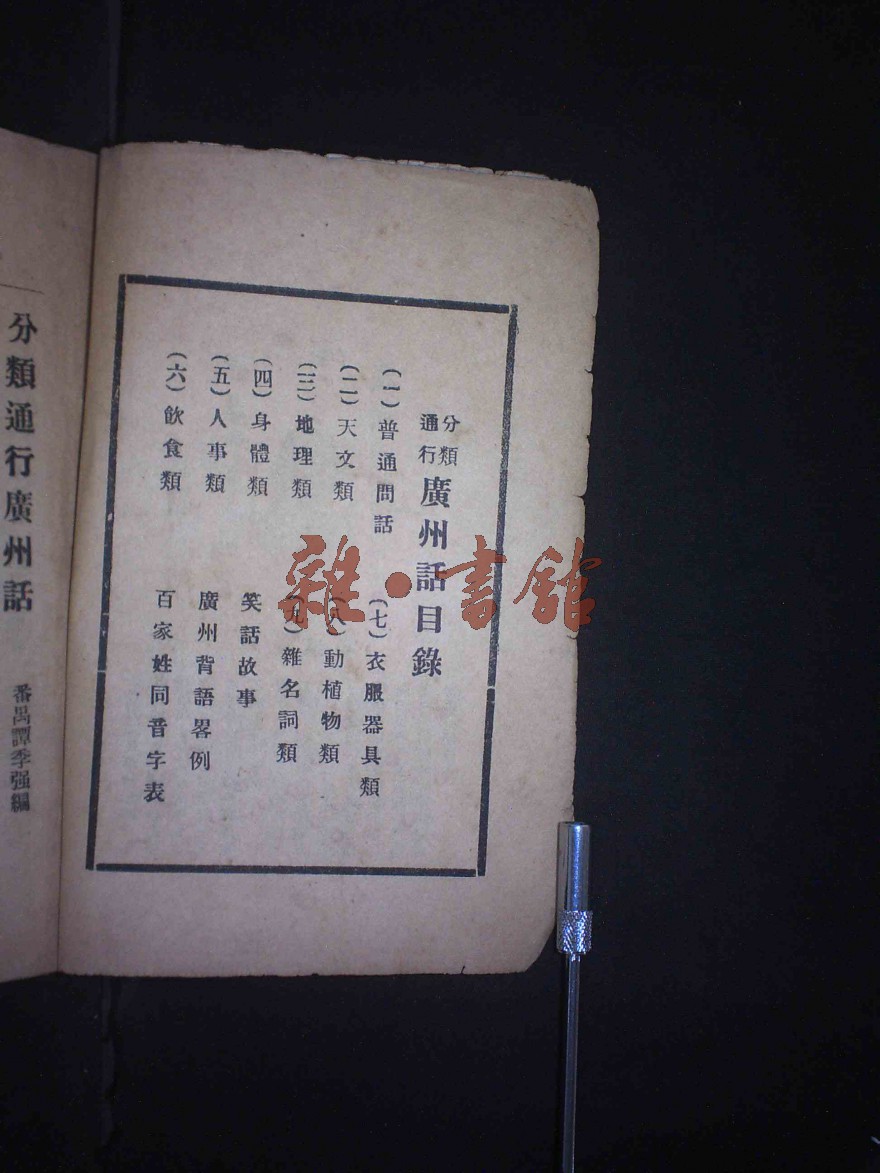 分類
通行
廣州話目錄
(一)普通問話
(二)天文類
(三)地理類
(四)身體類
(五)人事類
(六)飲食類
(七)衣服器具類
(八)動植物類
(九)雜名詞類
笑話故事
廣州背語畧例
百家姓同音字表
分類通行廣州話
番禺譚季强編
雜·書館